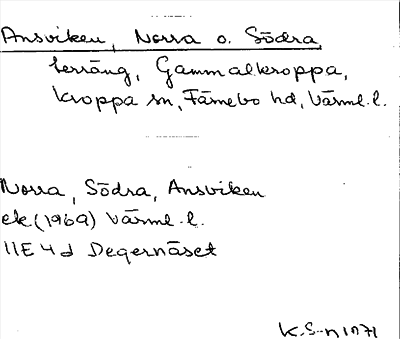 Ansviken, Norra o. Södra
terräng, Gammalkroppa,
Kroppa sn, Färnebo hd, Värml. l.
Norra, Södra, Ansviken
ek (1969) Värml. l.
11E 4d Degernäset
K.S-n 1971